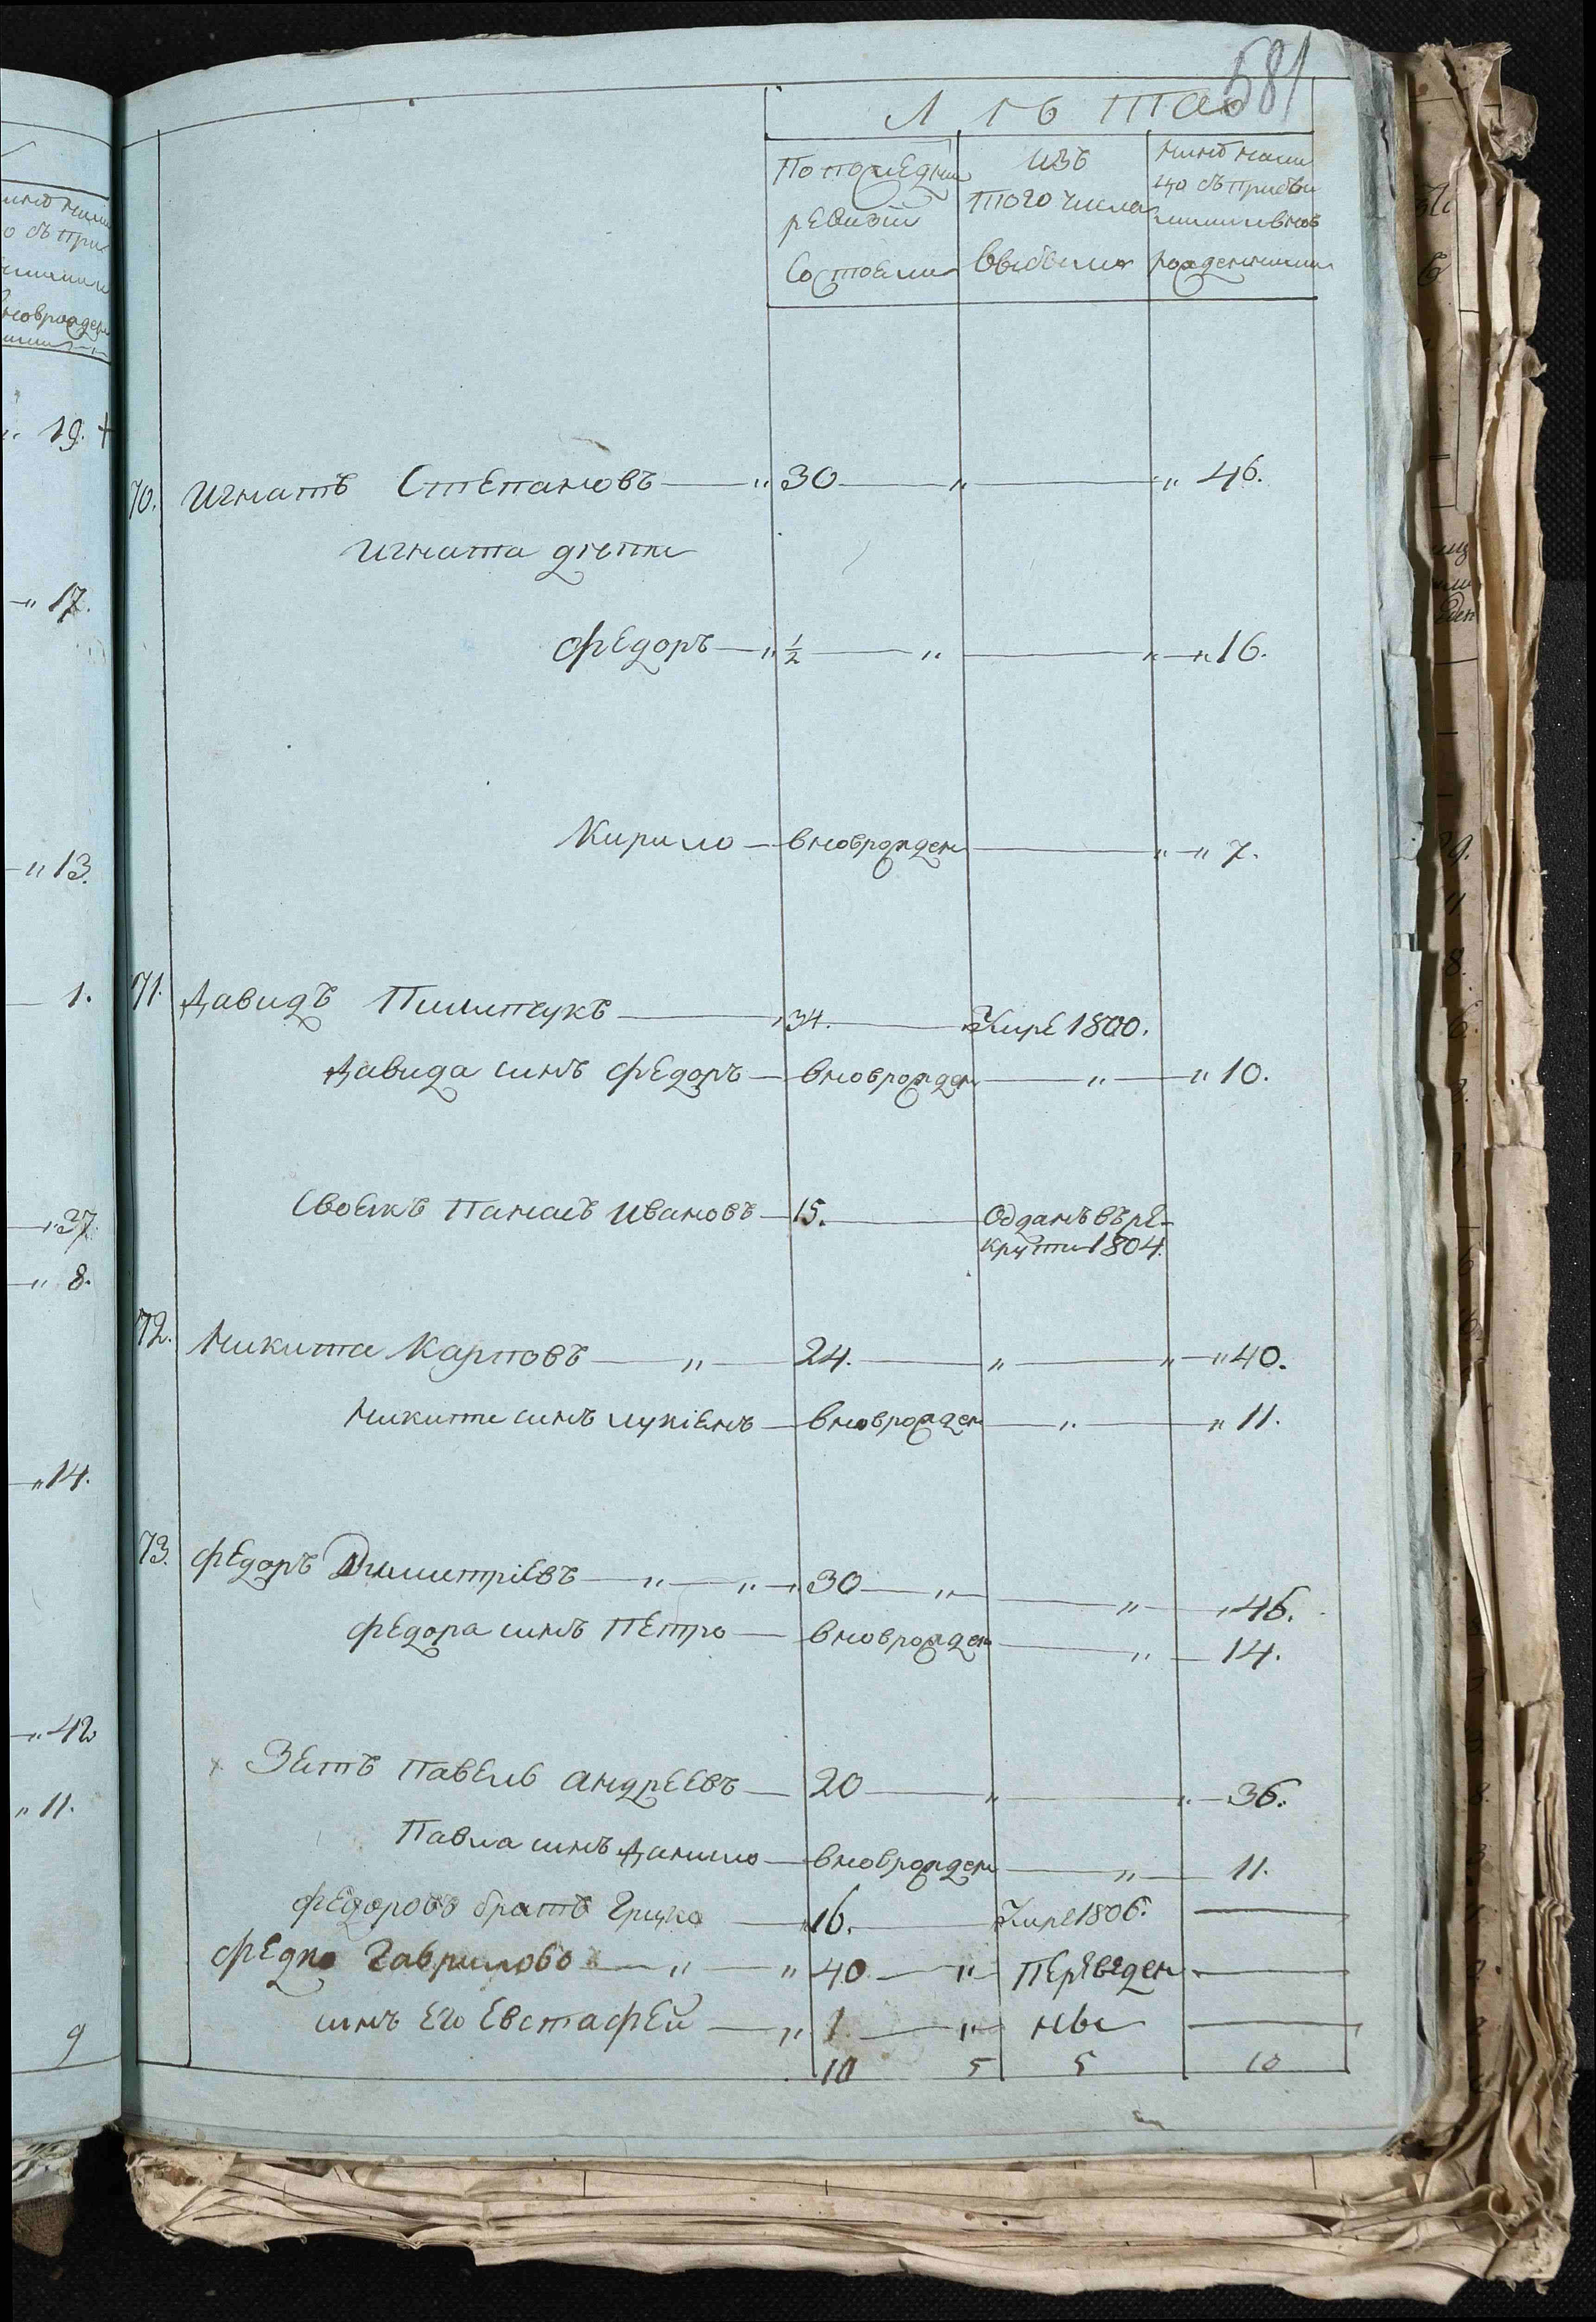 581
Лѣта
По последней ревизии состояли
Изъ того числа выбыли
Ныне нали цо съ прибы лими вновь рожденними
70. Игнатъ Степановъ — „ 30 — „ — „ 46.
Игната дѣти
Федоръ — „ 1/2 — „ — „ — „ 16.
Кирило — вноврожден — „ — „ 7.
71. Давидъ Пилипчукъ — „ 34. — Умре 1800.
Давида синъ Федоръ — вноврожден — „ — „ 10.
Своякъ Панасъ Ивановъ — 15. — Отданъ въ ре-
крути 1804.
72. Никита Карповъ — „ — 24. — „ — „ — „ 40.
Никити синъ Лукіенъ — вноврожден — „ — „ 11.
73. Федоръ Димитріевъ — „ — „ — „ 30 — „ — „ — „ 46.
Федора синъ Петро — вноврожден — „ — 14.
Зеть Павелъ Андреевъ — 20 — „ — „ — 36.
Павла синъ Данило — вноврожден — „ — 11.
Федоровъ братъ Грицко — „ 16. — Умре 1806. —
Федко Гавриловъ — „ — „ 40 — „ — Переведен —
синъ Его Евстафей — „ 1 — „ —
10 5 5 10
19. +
17.
13.
1.
37
8.
14.
42
11.
9